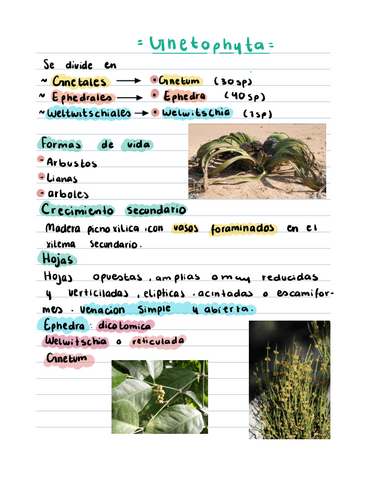 = Gnetophyta =
Se divide en
~ Gnetales → • Gnetum (30sp)
~ Ephedrales → • Ephedra (40sp)
~ Weltwitschiales → • Welwitschia (1sp)
Formas de vida
• Arbustos
• Lianas
• arboles
Crecimiento secundario
Madera picnoxilica con vasos foraminados en el
xilema secundario.
Hojas
Hojas opuestas, amplias o muy reducidas
y verticiladas, elipticas, acintadas o escamifor-
mes. venacion simple y abierta.
Ephedra: dicotomica
Welwitschia o reticulada
Gnetum